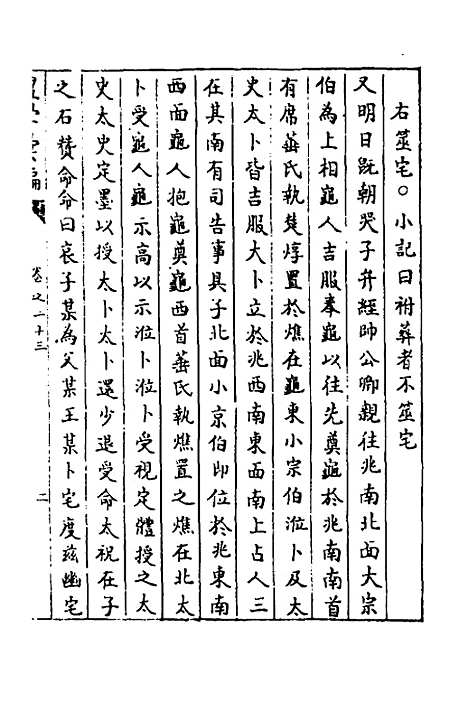 右筮宅○小記曰祔葬者不筮宅
又明日既朝哭子弁絰帥公卿親往兆南北面大宗
伯為上相龜人吉服奉龜以往先奠龜於兆南南首
有席菙氏執楚焞置於燋在龜東小宗伯涖卜及太
史太卜皆吉服大卜立於兆西南東西南上占人三
在其南有司告事具子北面小京伯即位於兆東南
西面龜人抱龜奠龜西首菙氏執燋置之燋在北太
卜受龜人龜示高以示涖卜涖卜受視定體授之太
史太史定墨以授太卜太卜還少退受命太祝在子
之右贊命命曰哀子某為父某王某卜宅度玆幽宅
卷之二十三
二